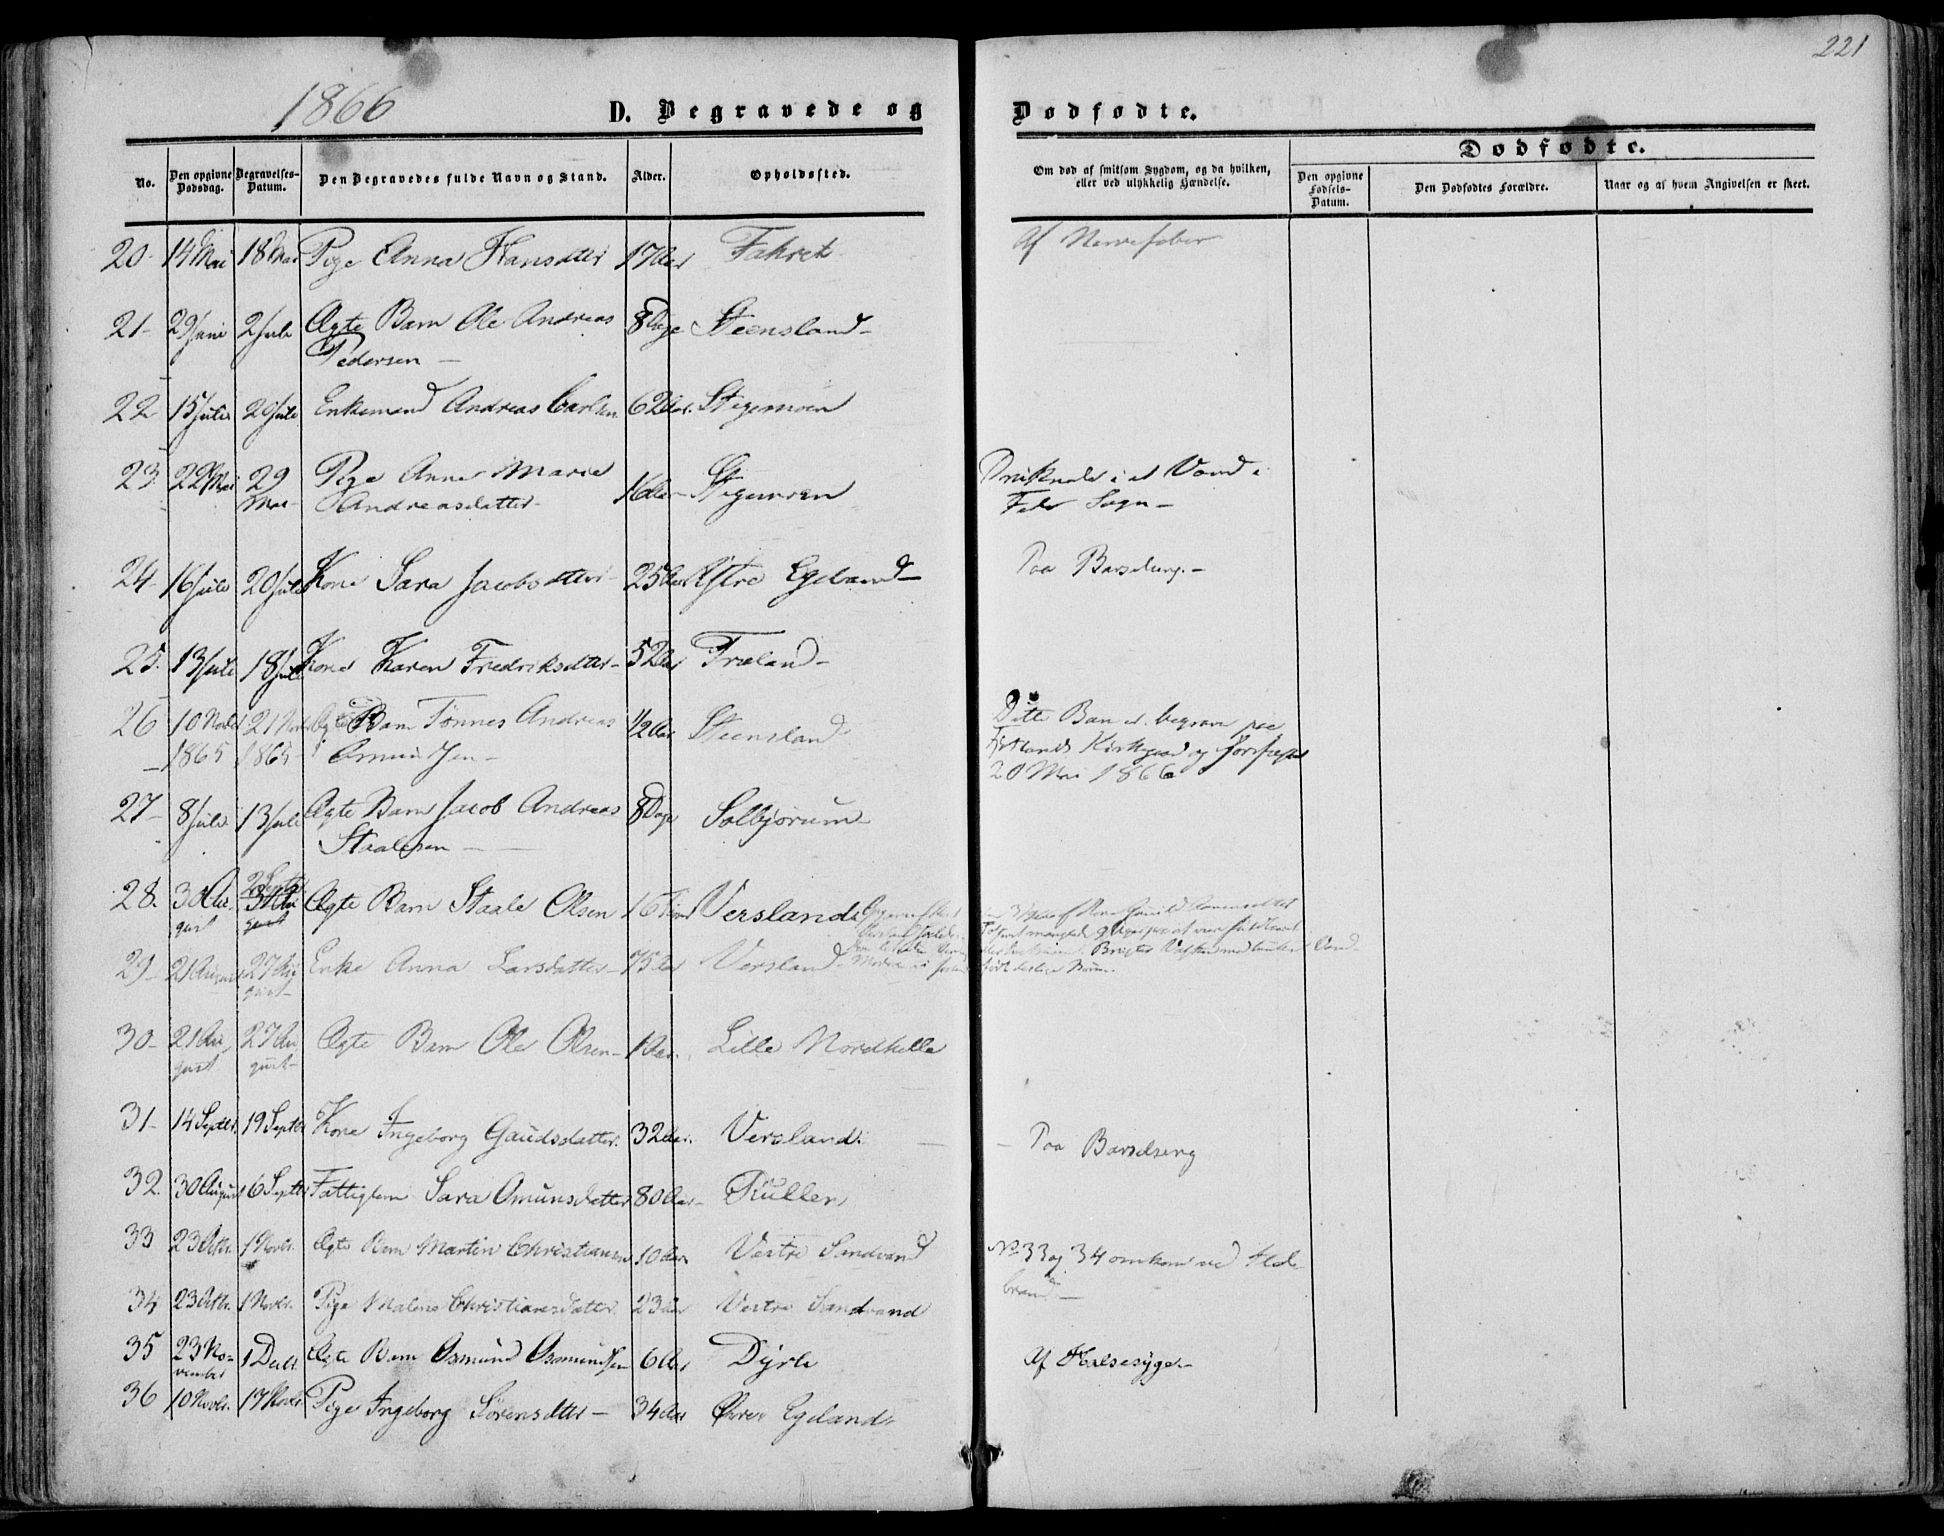 221
1866
D. Begravede og Dødfødte.
No.
Den opgivne Dødsdag.
Begravelses-Datum.
Den Begravedes fulde Navn og Stand.
Alder.
Opholdssted.
Om død af smitsom Sygdom, og da hvilken, eller ved ulykkelig Hændelse.
Dødfødte.
Den opgivne Fødsels-Datum.
Den Dødfødtes Forældre.
Naar og af hvem Angivelsen er skeet.
20 14 Mai 18 Mai Pige Anna Hansdtter 17 Aar Af Nervefeber
21 29 Juni 2 Juli Ægte Barn Ole Andreas 8 Dage Steensland
Pedersen
22 15 Juli 20 Juli Enkemand Andreas Carlsen 62 Aar Stegemoen
23 22 Mai 29 Mai Pige Anna Marie 16 Aar Druknede i et Vand i
Andreasdatter Sogn
24 16 Juli 20 Juli Kone Sara Jacobsdtter 25 Aar Egeland Paa Barselseng
25 13 Juli 18 Juli Kone Karen Fredriksdtter 52 Aar Træland
26 10 Novbr 21 Novbr Ægte Barn Tønnes Andreas 1/2 Aar Steensland Dette Barn er begravet paa
1865 1865 Osmundsen Kirkegaard og
20 Mai 1866
27 8 Juli 13 Juli Ægte Barn Jacob Andreas 8 Dage Solbjørum
Staalesen
28. 30 August 2 Septbr Ægte Barn Staale Olsen 16 Versland
29 21 August 27 August Enke Anna Larsdatter 75 Aar Versland
30 21 August 27 August Ægte Barn Ole Olsen 1 Aar Lille Nordhelle
31 14 Septbr. 19 Septbr Kone Ingeborg Gaudsdatter. 32 Aar. Versland Paa Barselseng
32. 30 August 6 Septbr Fattiglem Sara Omunsdatter 80 Aar Rullen
33 23 Octbr. 1 Novbr. Ægte Barn Martin Christiansen 10 Aar Vestre Sandvand No 33 og 34 omkom ved Ilde
brand
34 23 Octbr. 1 Novbr. Pige Malene Christiansdatter 23 Aar Vestre Sandvand
35 23 November 1 Decbr. Ægte Barn Osmund Osmundsen 6 Aar Dyrli Af Halsesyge
36 10 Novbr. 17 Novbr. Pige Ingeborg Sørensdtter 34 Aar Egeland